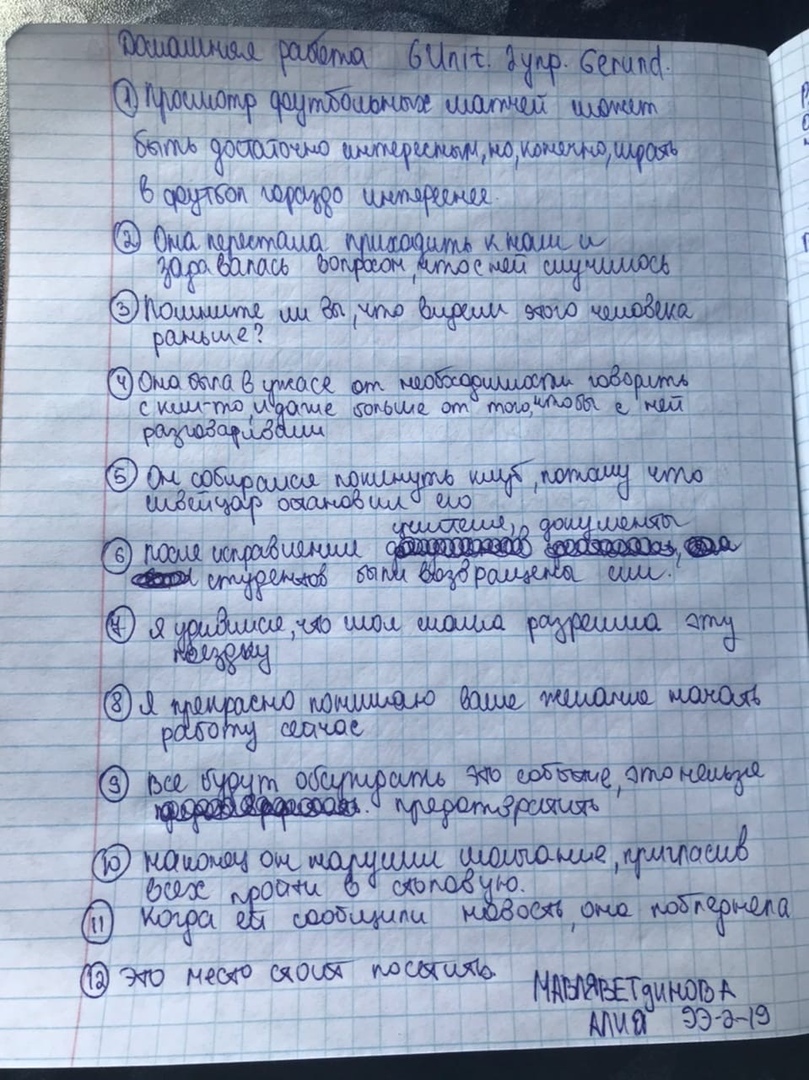 Домашняя работа 6Unit. 2упр. Gerund.
① Просмотр футбольных матчей может
быть достаточно интересным, но, конечно, играть
в футбол гораздо интереснее.
② Она перестала приходить к нам и
задавалась вопросом, что с ней случилось
③ Помните ли Вы, что видели этого человека
раньше?
④ Она была в ужасе от необходимости говорить
с кем-то, и даже больше от того, чтобы с ней
разговаривали
⑤ Он собирался покинуть клуб, потому что
швейцар остановил его
учителем, документы
⑥ после исправления
студентов были возвращены им.
⑦ Я удивился, что моя мама разрешила эту
поездку
⑧ Я прекрасно понимаю ваше желание начать
работу сейчас
⑨ Все будут обсуждать это событие, это нельзя
предотвратить
⑩ наконец он нарушил молчание, пригласив
всех пройти в столовую.
⑪ Когда ей сообщили новость, она побледнела
⑫ это место стоит посетить
МАВЛЯВЕТДИНОВА
АЛИЯ ЭЭ-2-19